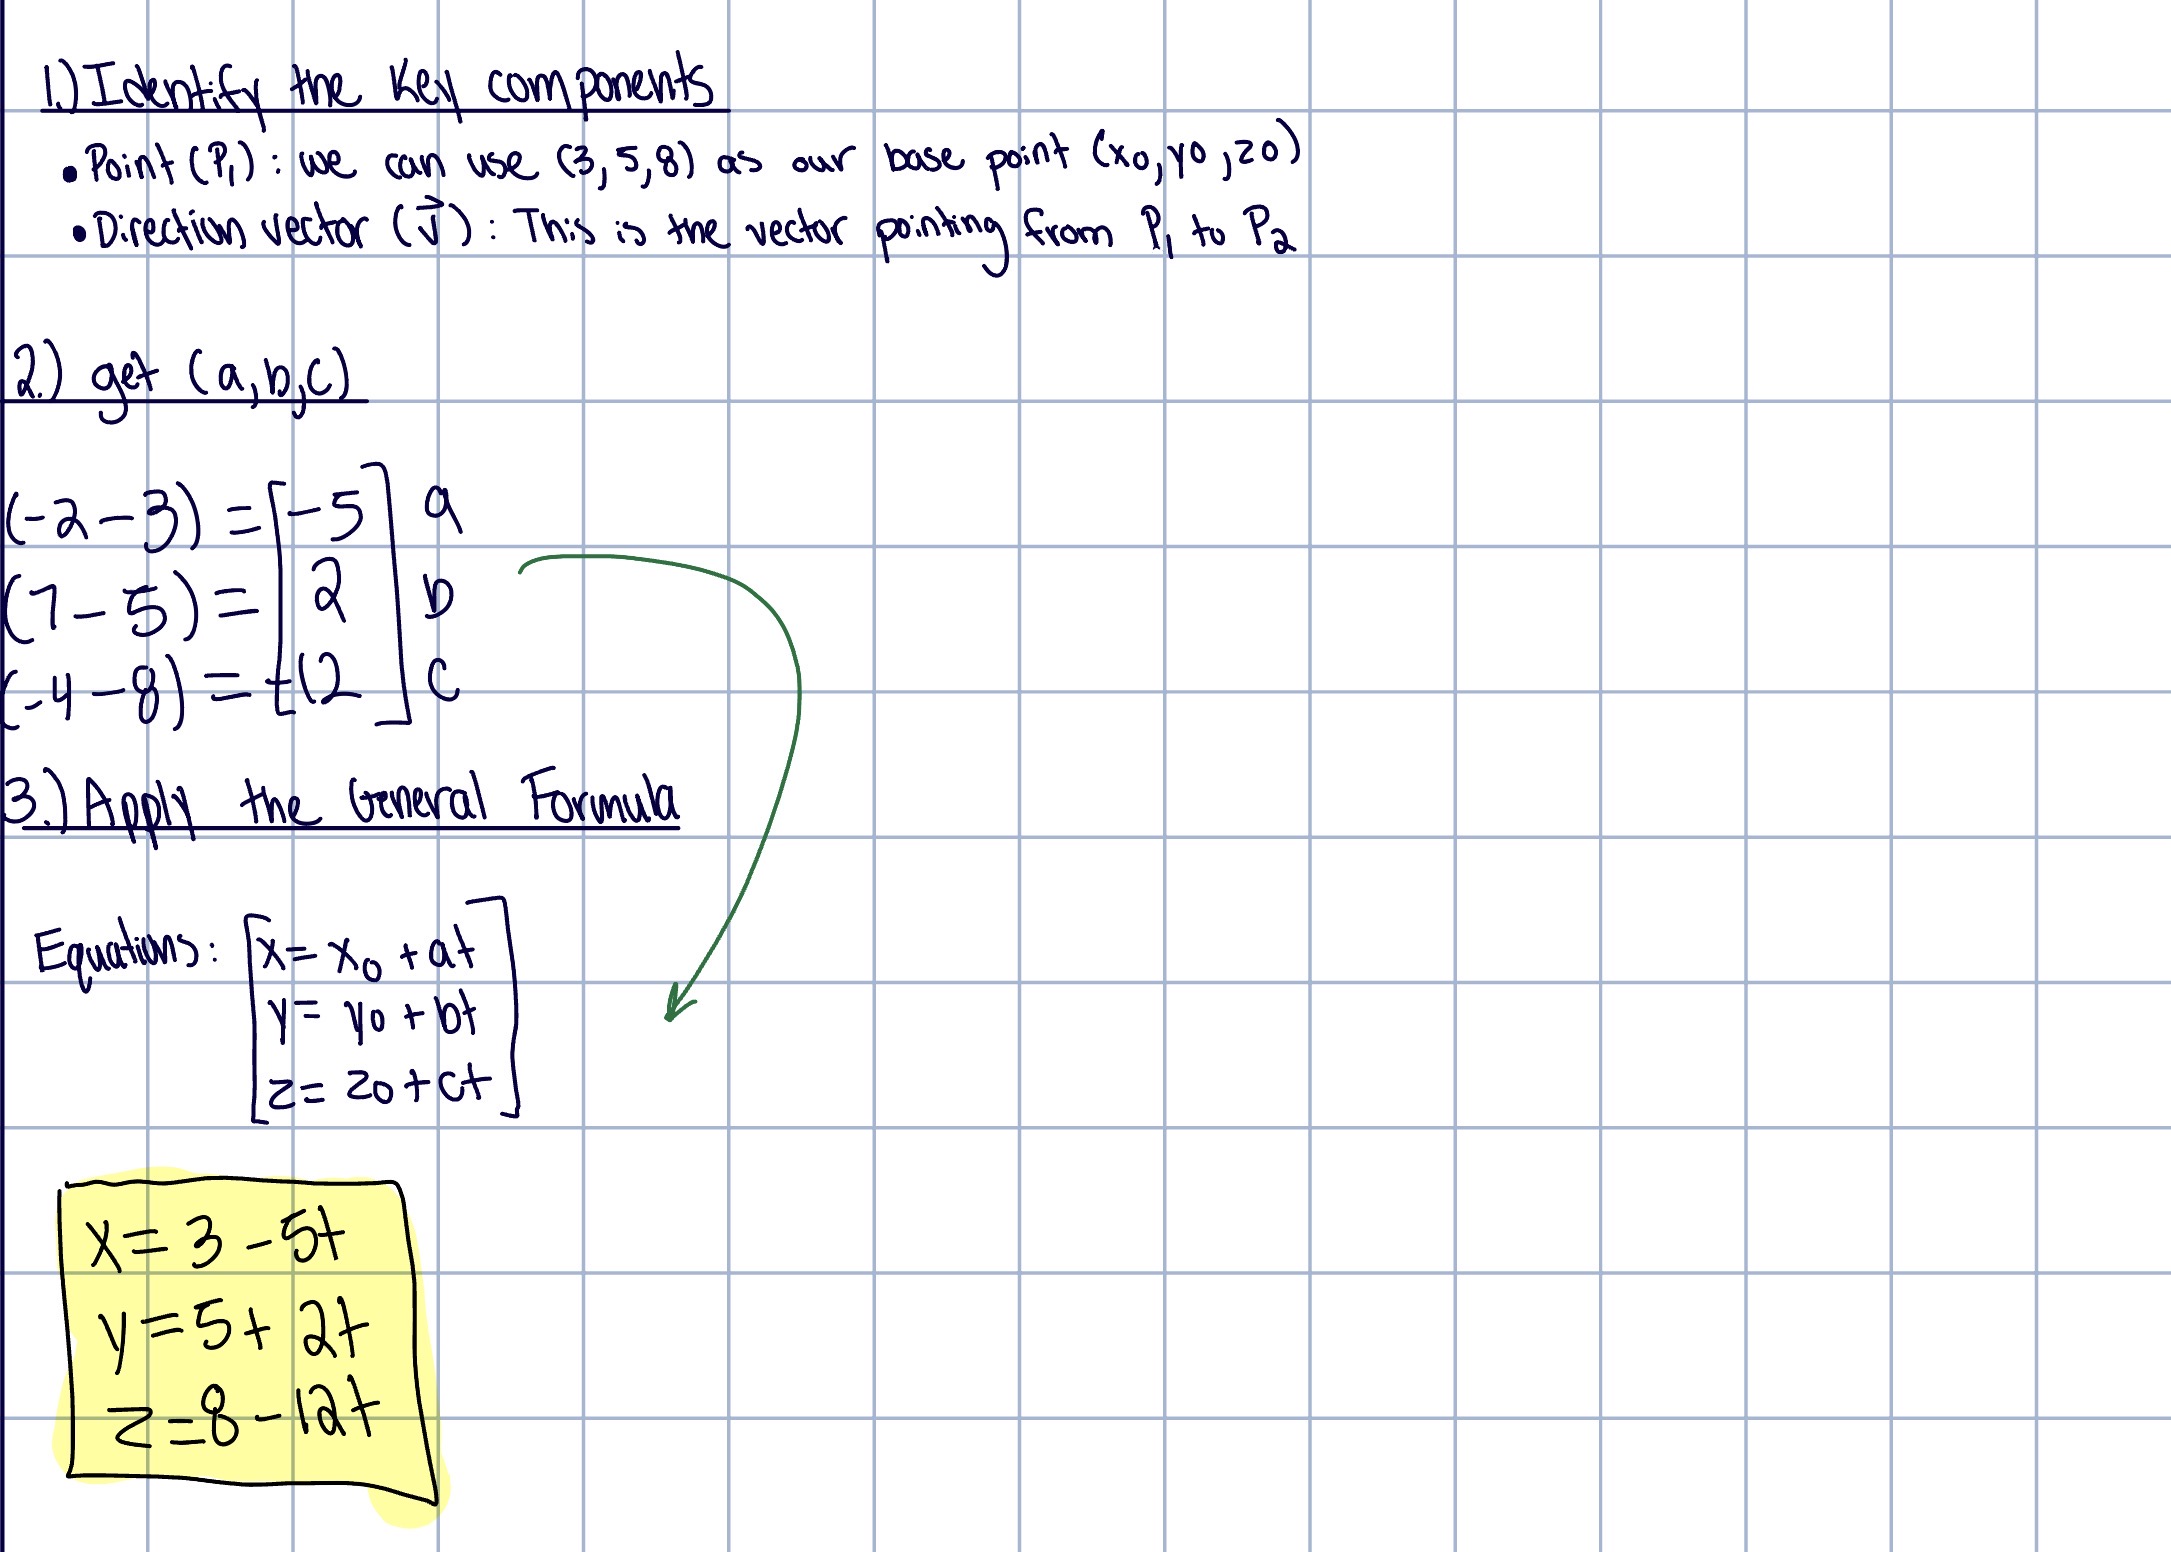 1.) Identify the Key components
• Point (P₁) : we can use (3, 5, 8) as our base point (x0, y0, z0)
• Direction vector (v⃗) : This is the vector pointing from P₁ to P₂
2.) get (a,b,c)
(-2-3) = [-5] a
(7-5) = [2] b
(-4-8) = [-12] c
3.) Apply the General Formula
Equations: [x = x₀ + at
y = y0 + bt
z = z0 + ct]
x = 3 - 5t
y = 5 + 2t
z = 8 - 12t